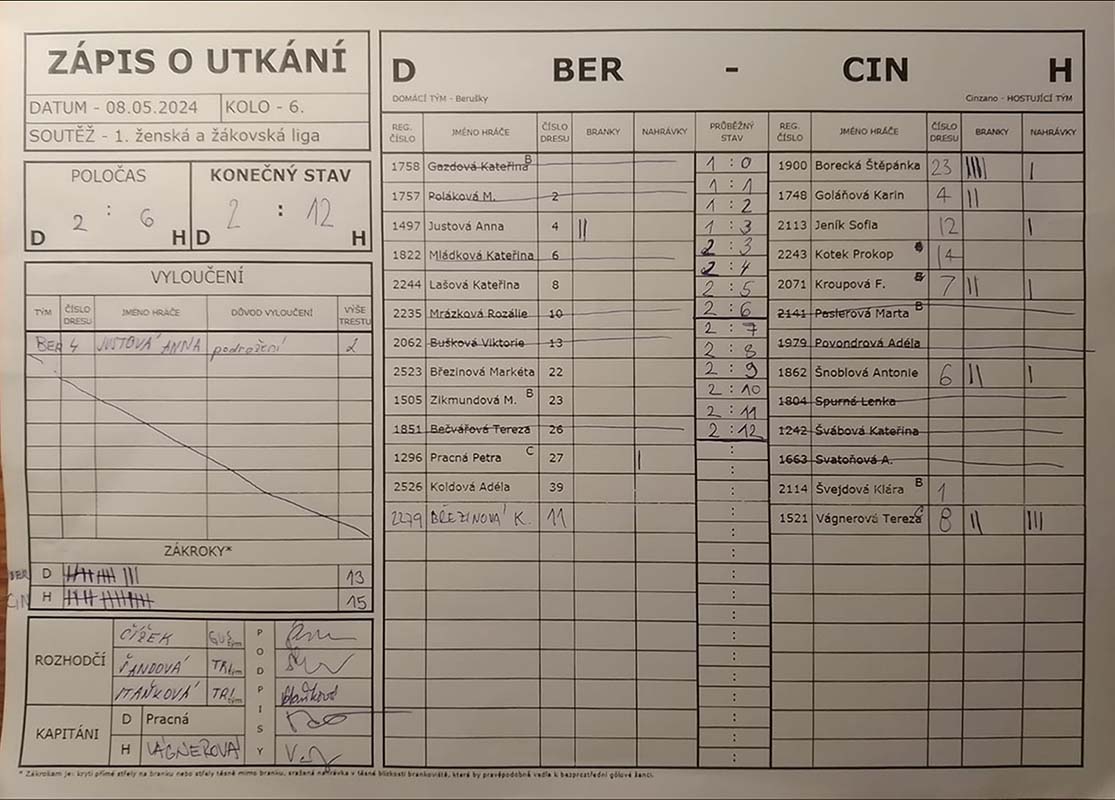 ZÁPIS O UTKÁNÍ
DATUM - 08.05.2024 KOLO - 6.
SOUTĚŽ - 1. ženská a žákovská liga
POLOČAS KONEČNÝ STAV
2 : 6 2 : 12
D H D H
VYLOUČENÍ
TÝM ČÍSLO DRESU JMÉNO HRÁČE DŮVOD VYLOUČENÍ VÝŠE TRESTU
BER 4 JUSTOVÁ ANNA podražení 2
ZÁKROKY*
BER D 13
CIN H 15
ROZHODČÍ
ČÍŽEK
ŠANDOVÁ TRI
TRI
PODPISY
KAPITÁNI
D Pracná
H VÁGNEROVÁ
D BER - CIN H
DOMÁCÍ TÝM - Berušky Cinzano - HOSTUJÍCÍ TÝM
REG. ČÍSLO JMÉNO HRÁČE ČÍSLO DRESU BRANKY NAHRÁVKY PRŮBĚŽNÝ STAV REG. ČÍSLO JMÉNO HRÁČE ČÍSLO DRESU BRANKY NAHRÁVKY
1758 Gazdová Kateřina B
1757 Poláková M. 2
1497 Justová Anna 4 ||
1822 Mládková Kateřina 6
2244 Lašová Kateřina 8
2235 Mrázková Rozálie 10
2062 Bušková Viktorie 13
2523 Březinová Markéta 22
1505 Zikmundová M. B 23
1851 Bečvářová Tereza 26
1296 Pracná Petra C 27 |
2526 Koldová Adéla 39
2279 BŘEZINOVÁ K. 11
1 : 0
1 : 1
1 : 2
1 : 3
2 : 3
2 : 4
2 : 5
2 : 6
2 : 7
2 : 8
2 : 9
2 : 10
2 : 11
2 : 12
1900 Borecká Štěpánka 23 |||| |
1748 Goláňová Karin 4 ||
2113 Jeník Sofia 12 |
2243 Kotek Prokop 14
2071 Kroupová F. 7 || |
2141 Pasierová Marta B
1979 Povondrová Adéla
1862 Šnoblová Antonie 6 || |
1804 Spurná Lenka
1242 Švábová Kateřina
1663 Svatoňová A.
2114 Švejdová Klára B 1
1521 Vágnerová Tereza C 8 || |||
* Zákrokem je: krytí přímé střely na branku nebo střely těsně mimo branku, sražená nahrávka v těsné blízkosti brankoviště, která by pravěpodobně vedla k bezprostřední gólové šanci.